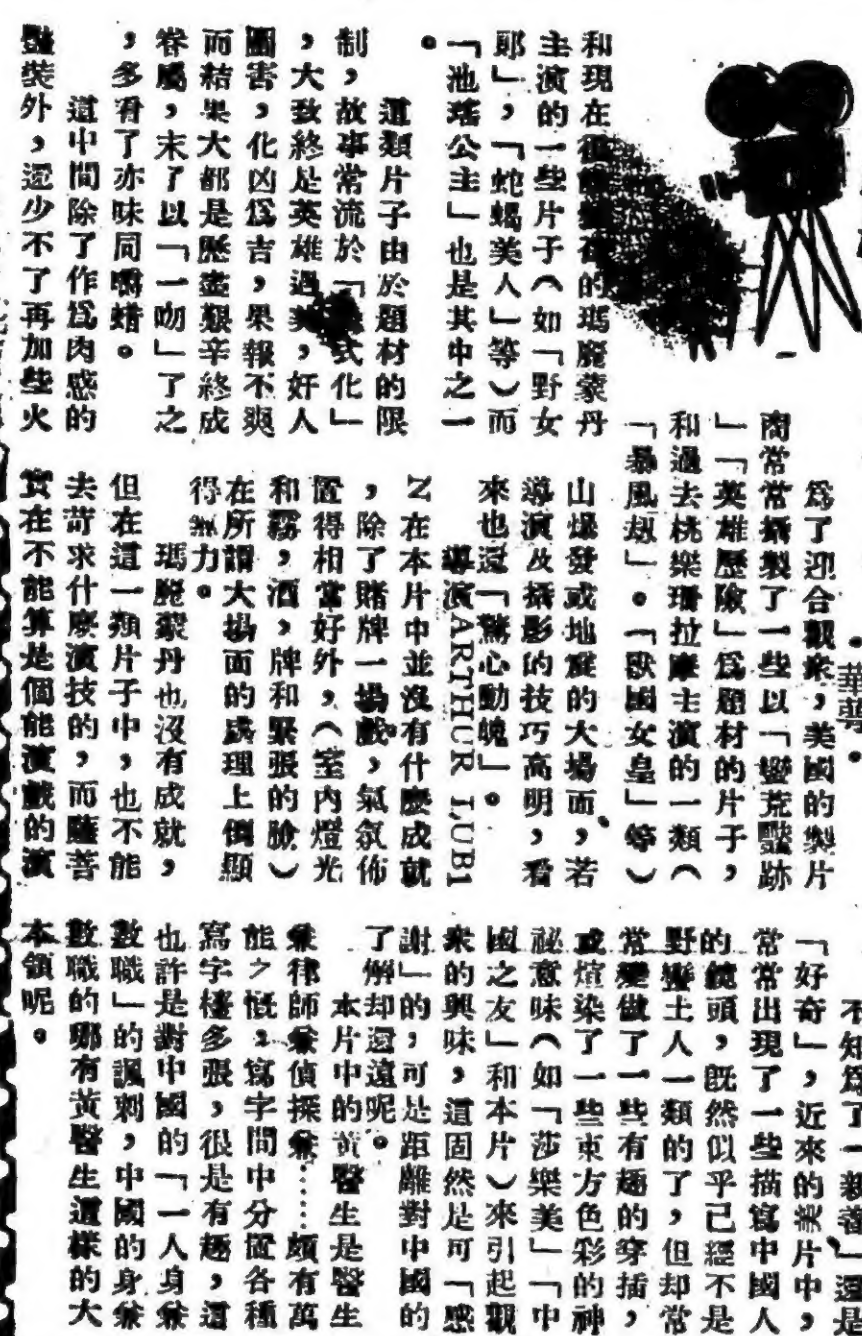 華蕚
爲了迎合觀衆,美國的製片
商常常攝製了一些以「蠻荒豔跡
」「英雄歷險」爲題材的片子,
和過去桃樂珊拉摩主演的一類(
「暴風刼」。「獸國女皇」等)
和現在很 的瑪麗蒙丹
主演的一些片子(如「野女
郞」,「蛇蝎美人」等)而
「池瑤公主」也是其中之一
。
這類片子由於題材的限
制,故事常流於「 式化」
,大致終是英雄遇美,好人
圖害,化凶爲吉,果報不爽
而結果大都是歷盡艱辛終成
眷屬,末了以「一吻」了之
,多看了亦味同嚼蜡。
這中間除了作爲肉感的
豔裝外,還少不了再加些火
山爆發或地震的大場面,若
導演及攝影的技巧高明,看
來也還「驚心動魄」。
導演ARTHUR LUBI
Z在本片中並沒有什麼成就
,除了賭牌一場戲,氣氛佈
置得相當好外,(室內燈光
和霧,酒,牌和緊張的臉)
在所謂大場面的處理上倒顯
得無力。
瑪麗蒙丹也沒有成就,
但在這一類片子中,也不能
去苛求什麼演技的,而薩菩
實在不能算是個能演戲的演
不知爲了「親善」還是
「好奇」,近來的美片中,
常常出現了一些描寫中國人
的鏡頭,旣然似乎已經不是
野蠻土人一類的了,但却常
常變做了一些有趣的穿插,
或煊染了一些東方色彩的神
祕意味(如「莎樂美」「中
國之友」和本片)來引起觀
衆的興味,這固然是可「感
謝」的,可是距離對中國的
了解却還遠呢。
本片中的黃醫生是醫生
兼律師兼偵探兼……頗有萬
能之慨:寫字間中分置各種
寫字檯多張,很是有趣,這
也許是對中國的「一人身兼
數職」的諷刺,中國的身兼
數職的哪有黃醫生這樣的大
本領呢。